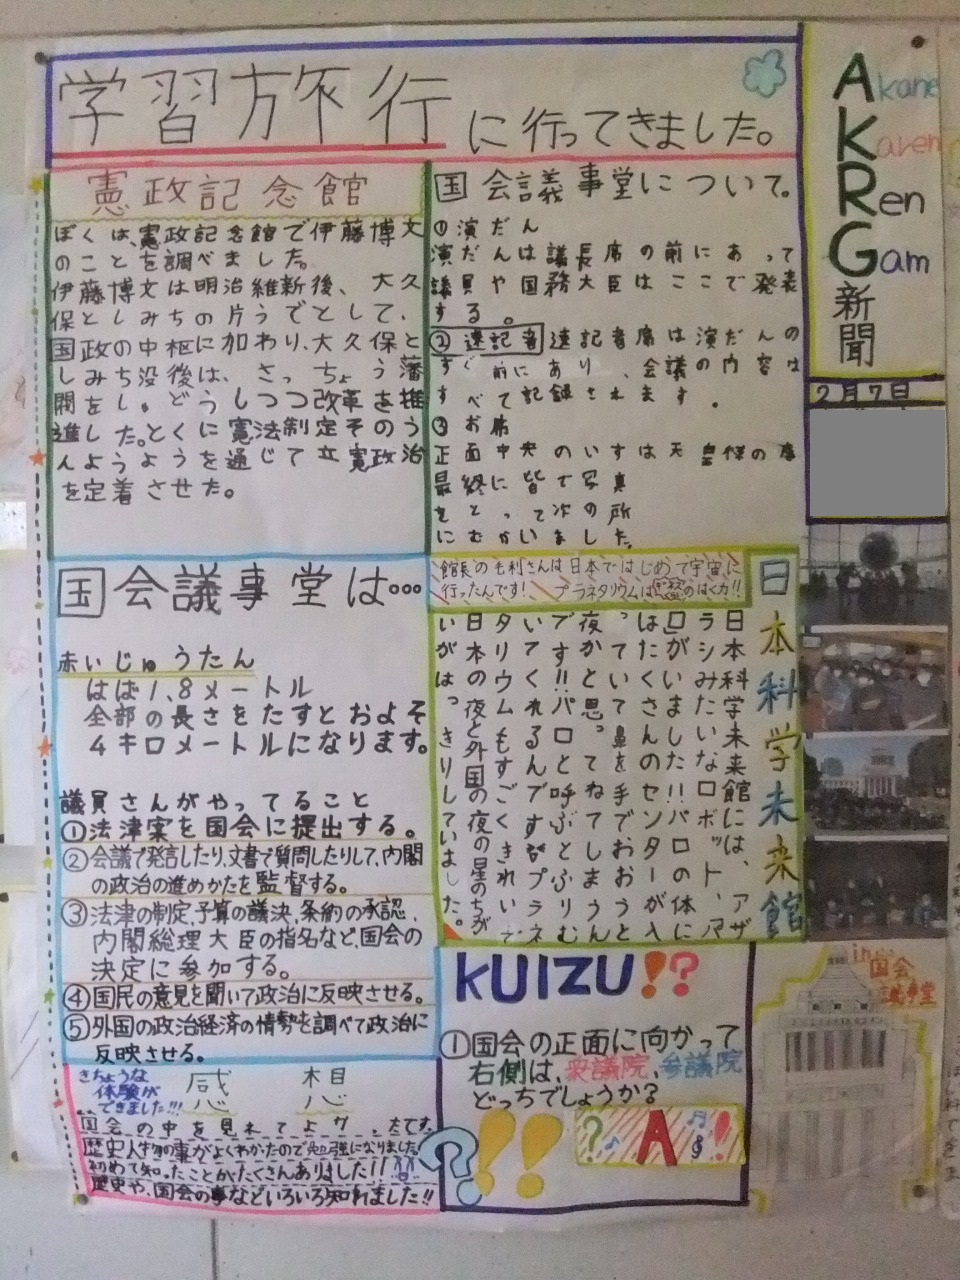 学習旅行に行ってきました。
Akane
Karen
Ren
Gam
新聞
2月7日
憲政記念館
ぼくは、憲政記念館で伊藤博文
のことを調べました。
伊藤博文は明治維新後、大久
保としみちの片うでとして、
国政の中枢に加わり、大久保と
しみち没後は、さっちょう藩
閥をし。どうしつつ改革を推
進した。とくに憲法制定そのう
んようようを通じて立憲政治
を定着させた。
国会議事堂について。
①演だん
演だんは議長席の前にあって
議員や国務大臣はここで発表
する。
②速記者 速記者席は演だんの
すぐ前にあり、会議の内容は
すべて記録されます。
③お席
正面中央のいすは天皇様の席
最終に皆で写真
をとって次の所
にむかいました。
国会議事堂は…
赤いじゅうたん
はば1.8メートル
全部の長さをたすとおよそ
4キロメートルになります。
議員さんがやってること
①法律案を国会に提出する。
②会議で発言したり、文書で質問したりして、内閣
の政治の進めかたを監督する。
③法律の制定、予算の議決、条約の承認、
内閣総理大臣の指名など、国会の
決定に参加する。
④国民の意見を聞いて政治に反映させる。
⑤外国の政治経済の情勢を調べて政治に
反映させる。
館長の毛利さんは日本ではじめて宇宙に
行ったんです! プラネタリウムは のはく力!!
日本科学未来館
日本科学未来館には、アザ
ラシみたいなロボット、パ
ロがいました!!パロの体に
はたくさんのセンターが入
っていて鼻を手でおおうと
夜かと思ってねてしまうん
です!!パロと呼ぶとふりむ
いてくれるんですプラネ
タリウムもすごくきれいで
日本の夜と外国の夜の星のちが
いがはっきりしていました。
感想
きちょうな
体験が
できました!!!
国会の中を見れてよかったです。
歴史人物の事がよくわかったので勉強になりました
初めて知ったことがたくさんありました!!
歴史や、国会の事などいろいろ知れました!!
KUIZU!?
①国会の正面に向かって
右側は、衆議院、参議院
どっちでしょうか?
?!!
? A !
in国会
議事堂